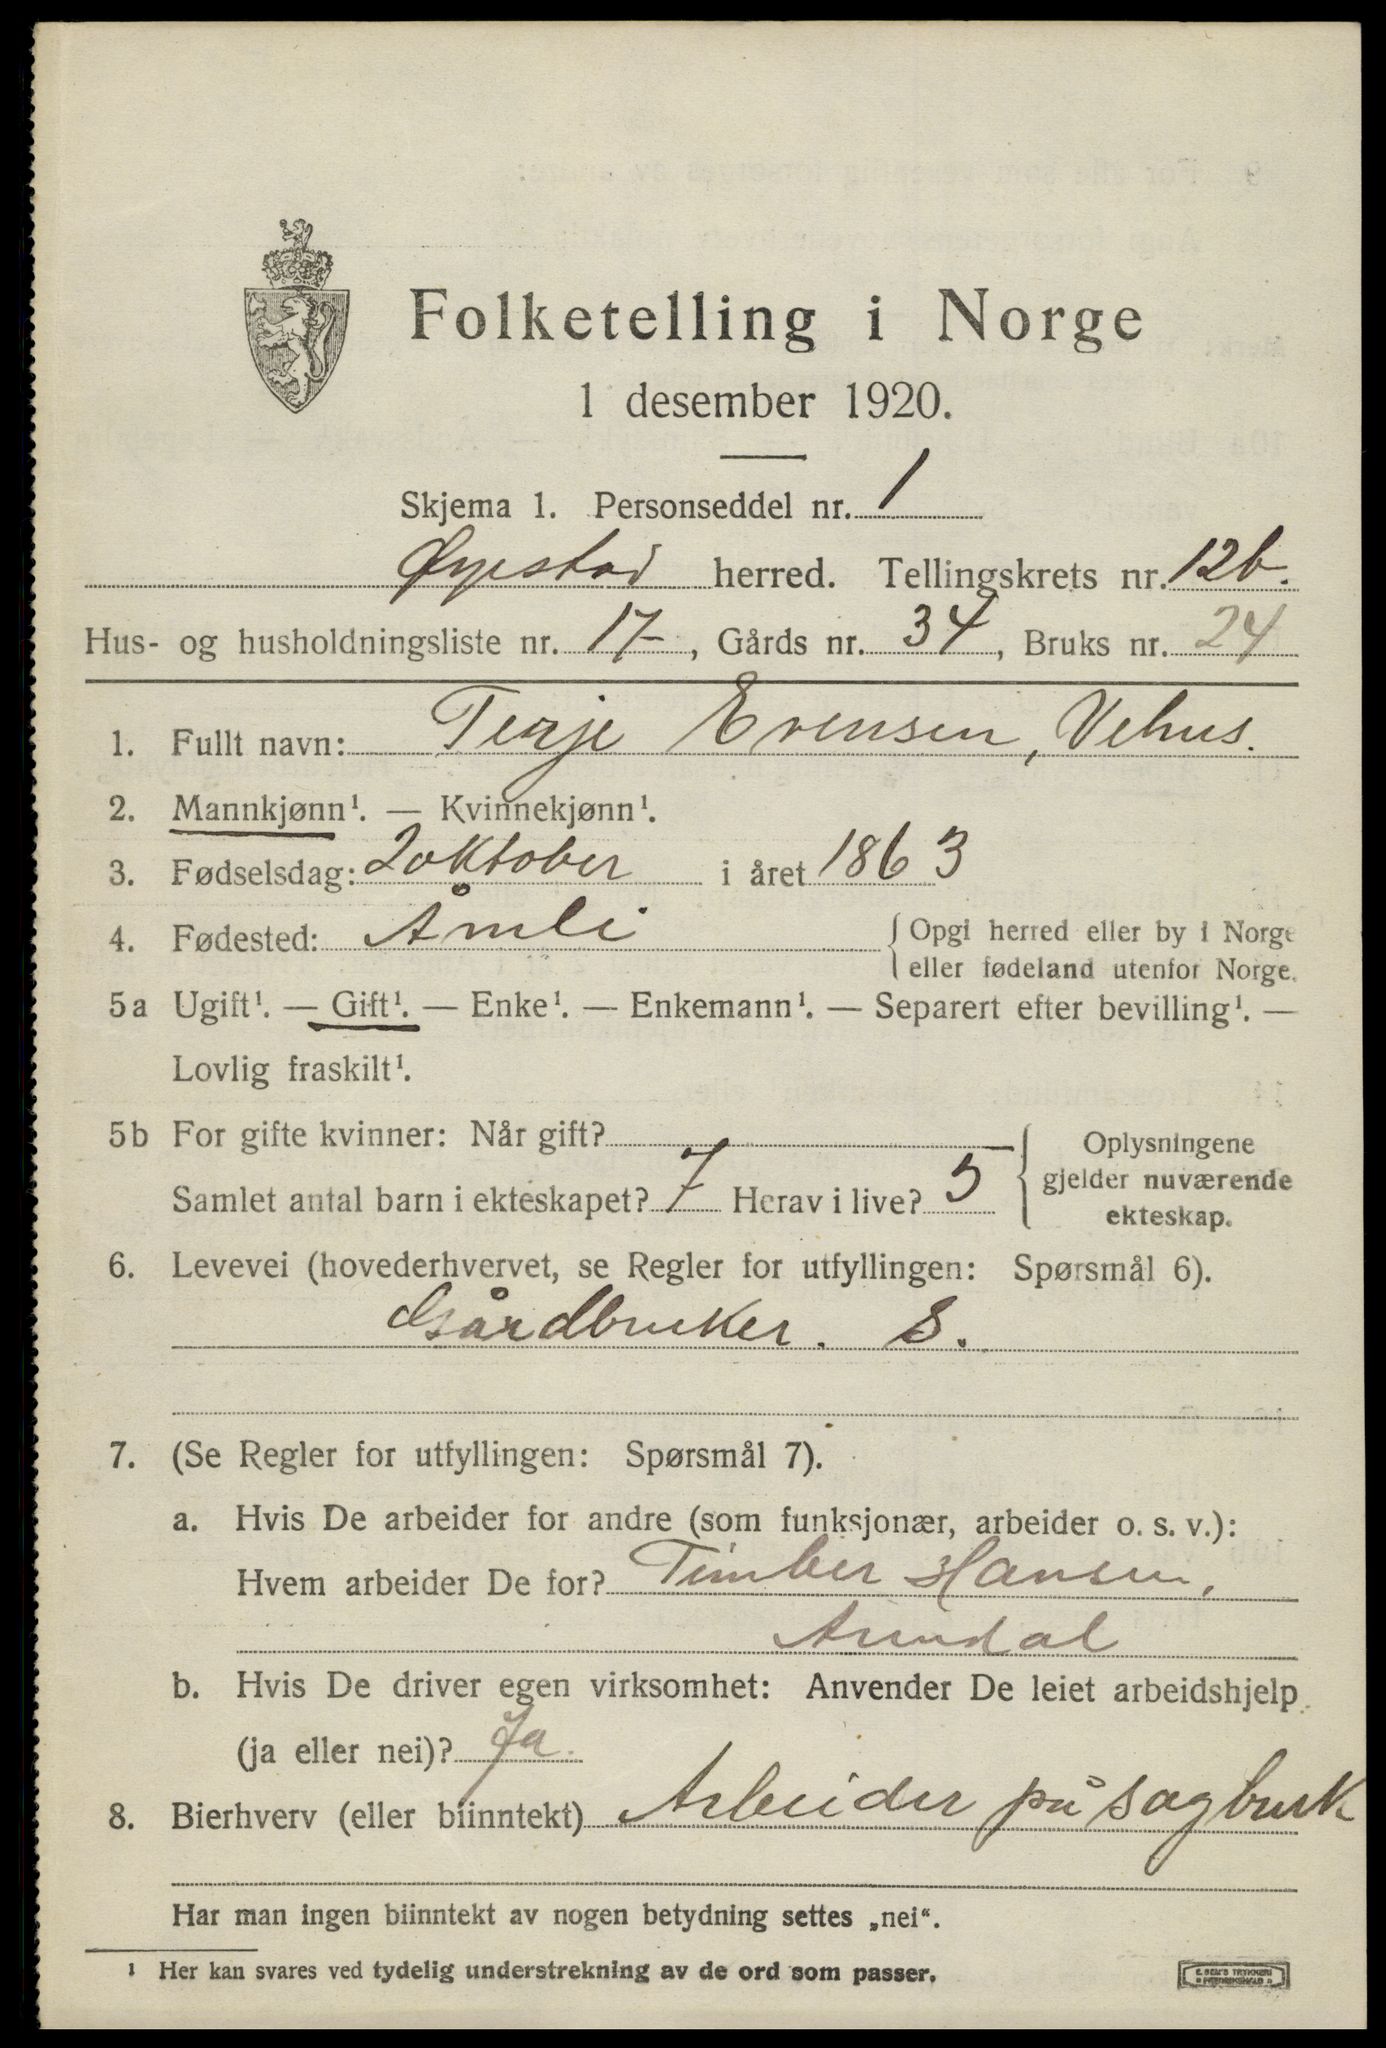 Folketelling i Norge
1 desember 1920.
Skjema 1. Personseddel nr. 1
Øyestad herred. Tellingskrets nr. 12b.
Hus- og husholdningsliste nr. 17, Gårds nr. 34, Bruks nr. 24
1. Fullt navn: Terje Evensen, Vehus.
2. Mannkjønn¹. — Kvinnekjønn¹.
3. Fødselsdag: 2 oktober i året 1863
4. Fødested: Åmli { Opgi herred eller by i Norge
eller fødeland utenfor Norge.
5a Ugift¹. — Gift¹. — Enke¹. — Enkemann¹. — Separert efter bevilling¹. —
Lovlig fraskilt¹.
5b For gifte kvinner: Når gift?
Samlet antal barn i ekteskapet? 7 Herav i live? 5 { Oplysningene
gjelder nuværende
ekteskap.
6. Levevei (hovederhvervet, se Regler for utfyllingen: Spørsmål 6).
Gårdbruker. S.
7. (Se Regler for utfyllingen: Spørsmål 7).
a. Hvis De arbeider for andre (som funksjonær, arbeider o. s. v.):
Hvem arbeider De for? Timber Hansen,
Arendal
b. Hvis De driver egen virksomhet: Anvender De leiet arbeidshjelp
(ja eller nei)? Ja.
8. Bierhverv (eller biinntekt) Arbeider på sagbruk
Har man ingen biinntekt av nogen betydning settes „nei“.
¹ Her kan svares ved tydelig understrekning av de ord som passer.
E. SEM'S TRYKKERI
FREDRIKSHALD